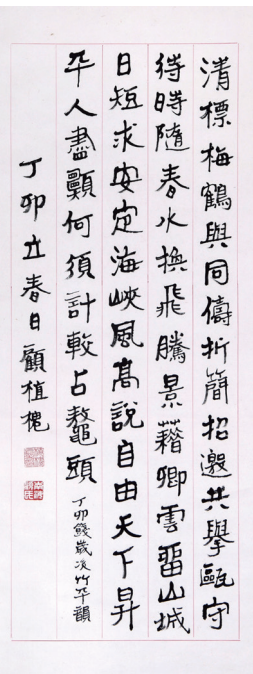 清標梅鶴與同儔折簡招邀共舉甌守
待時隨春水換飛騰景藉卿雲畱山城
日短求安定海峽風高說自由天下昇
平人盡願何須計較占鼇頭 丁卯餞歲次竹平韻
丁卯立春日顧植槐